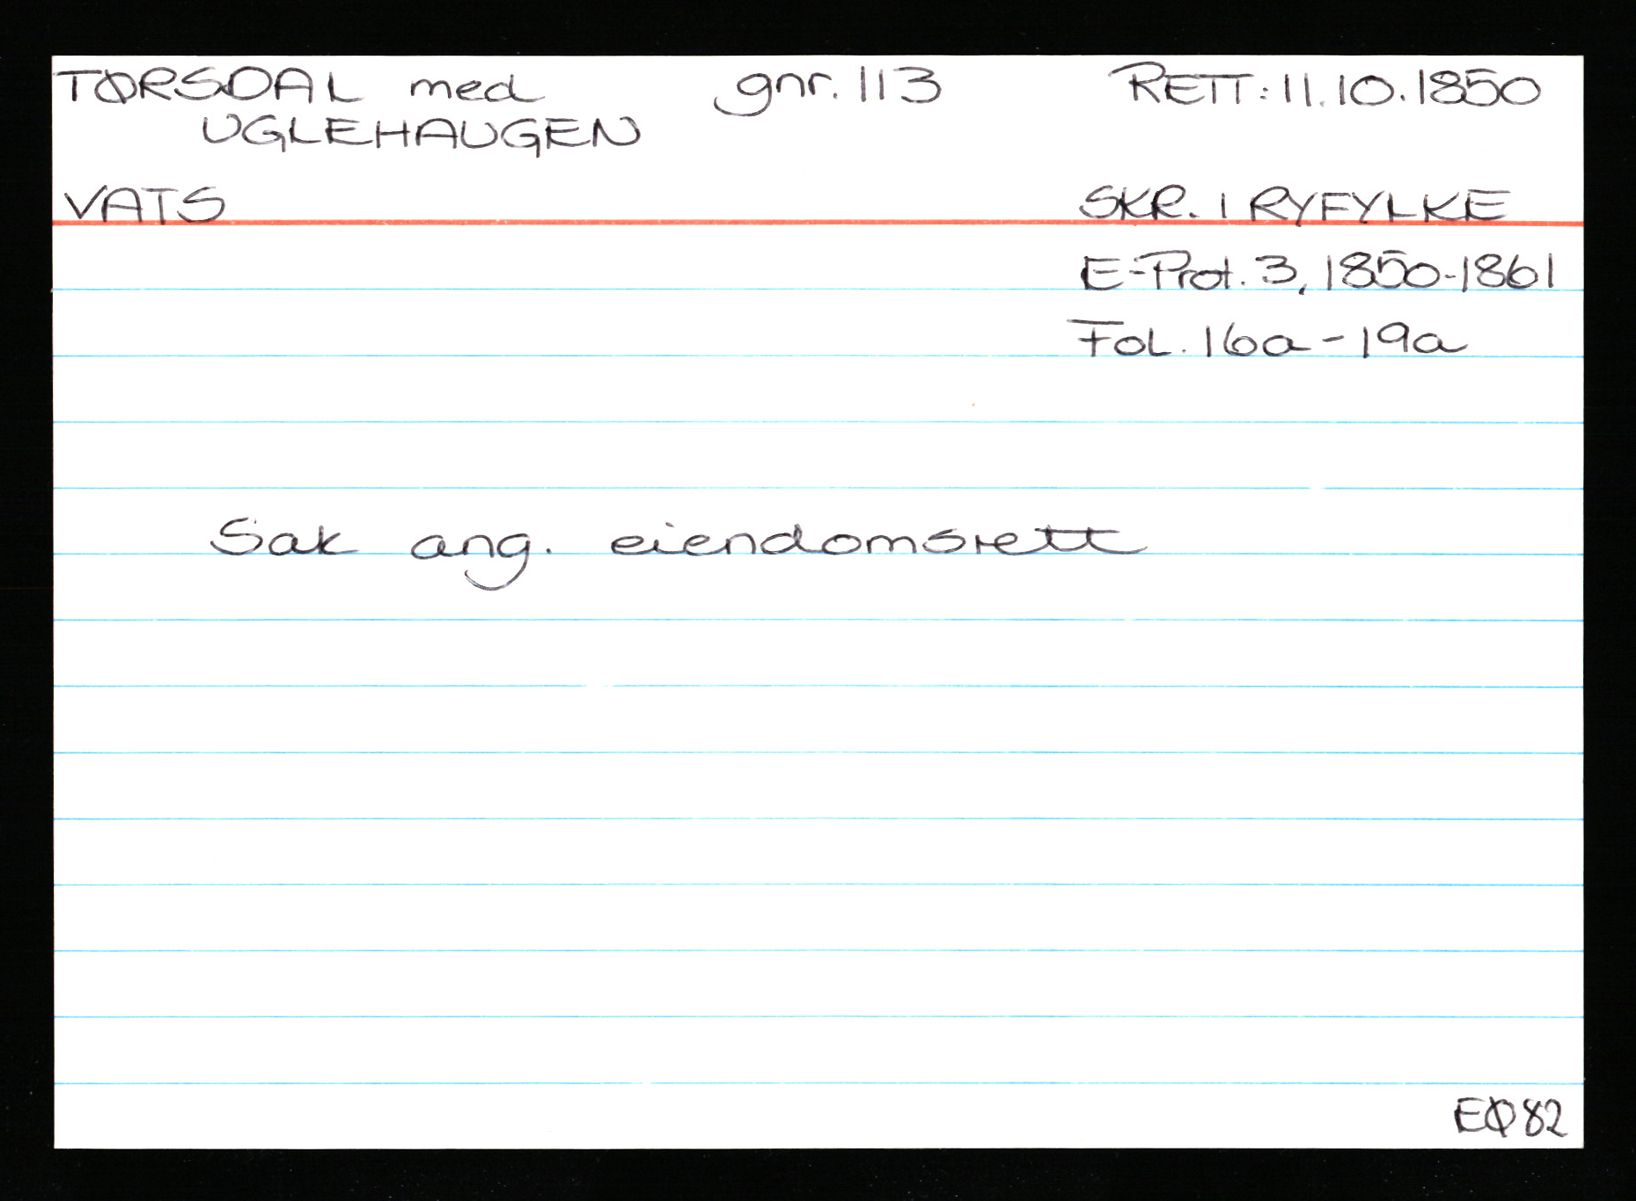 TØRSDAL med gnr. 113 RETT: 11.10.1850
UGLEHAUGEN
VATS SKR. I RYFYLKE
E-Prot. 3, 1850-1861
Fol. 16a - 19a
Sak ang. eiendomsrett
EØ82